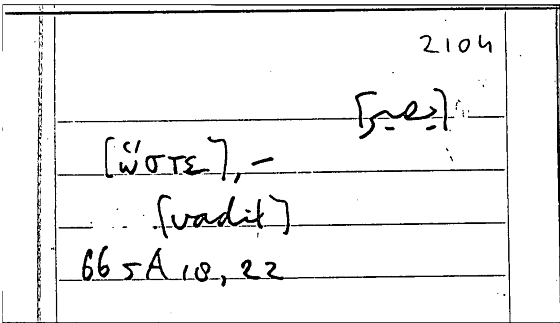 2104
[يصير]
[ὥστε], –
[vadit]
665A 18, 22